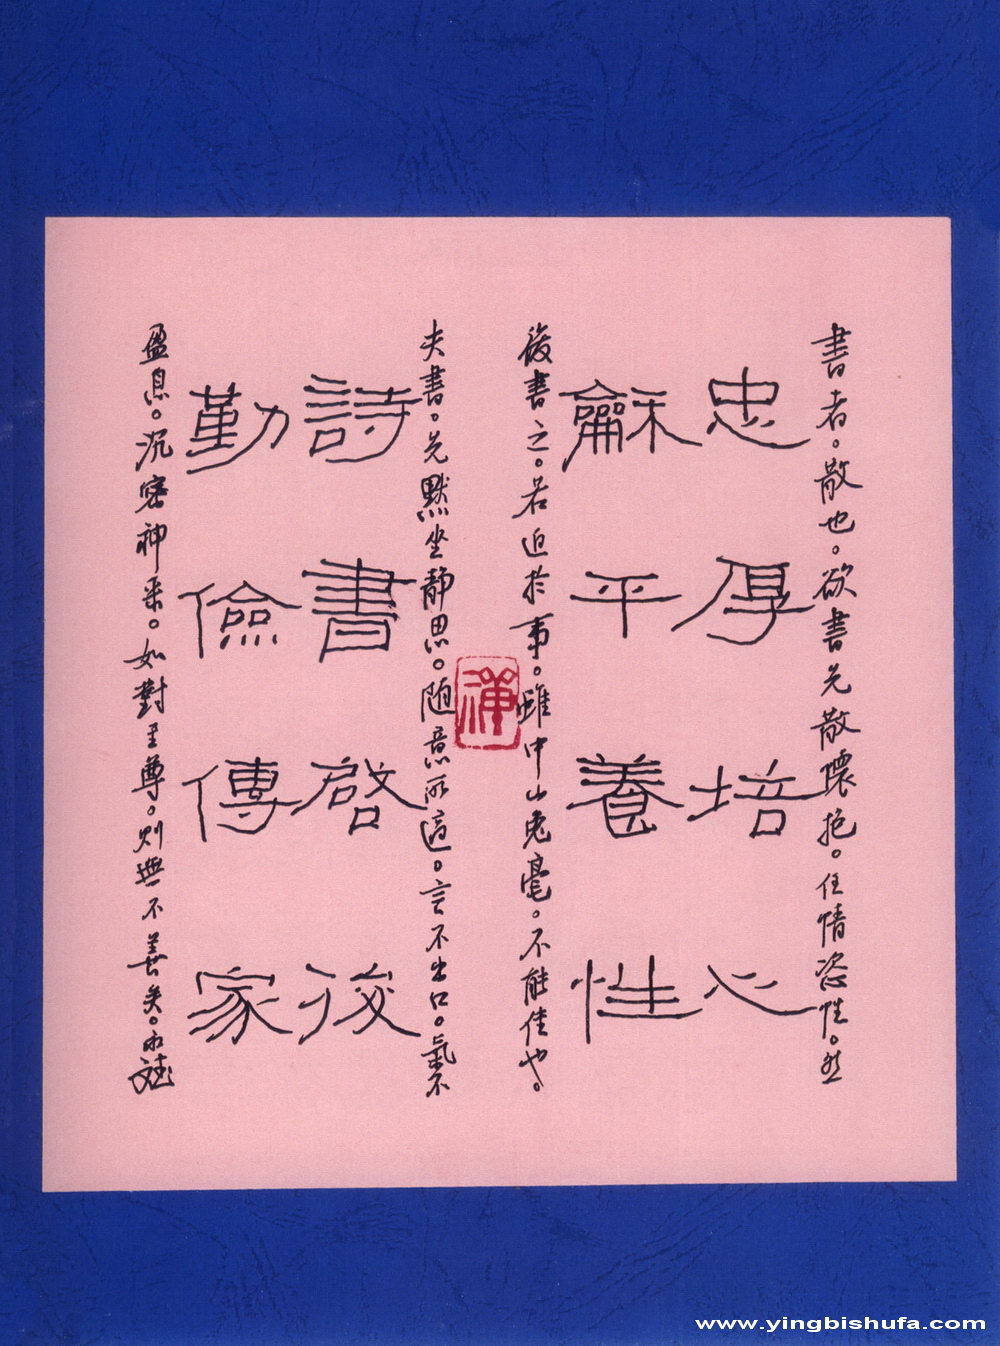 書者。散也。欲書先散懷抱。任情恣性。然
忠厚培心
龢平養性
後書之。若迫於事。雖中山兔毫。不能佳也。
夫書。先默坐静思。随意所適。言不出口。氣不
詩書啓後
勤儉傳家
盈息。沉密神采。如對至尊。則無不善矣。
www.yingbishufa.com